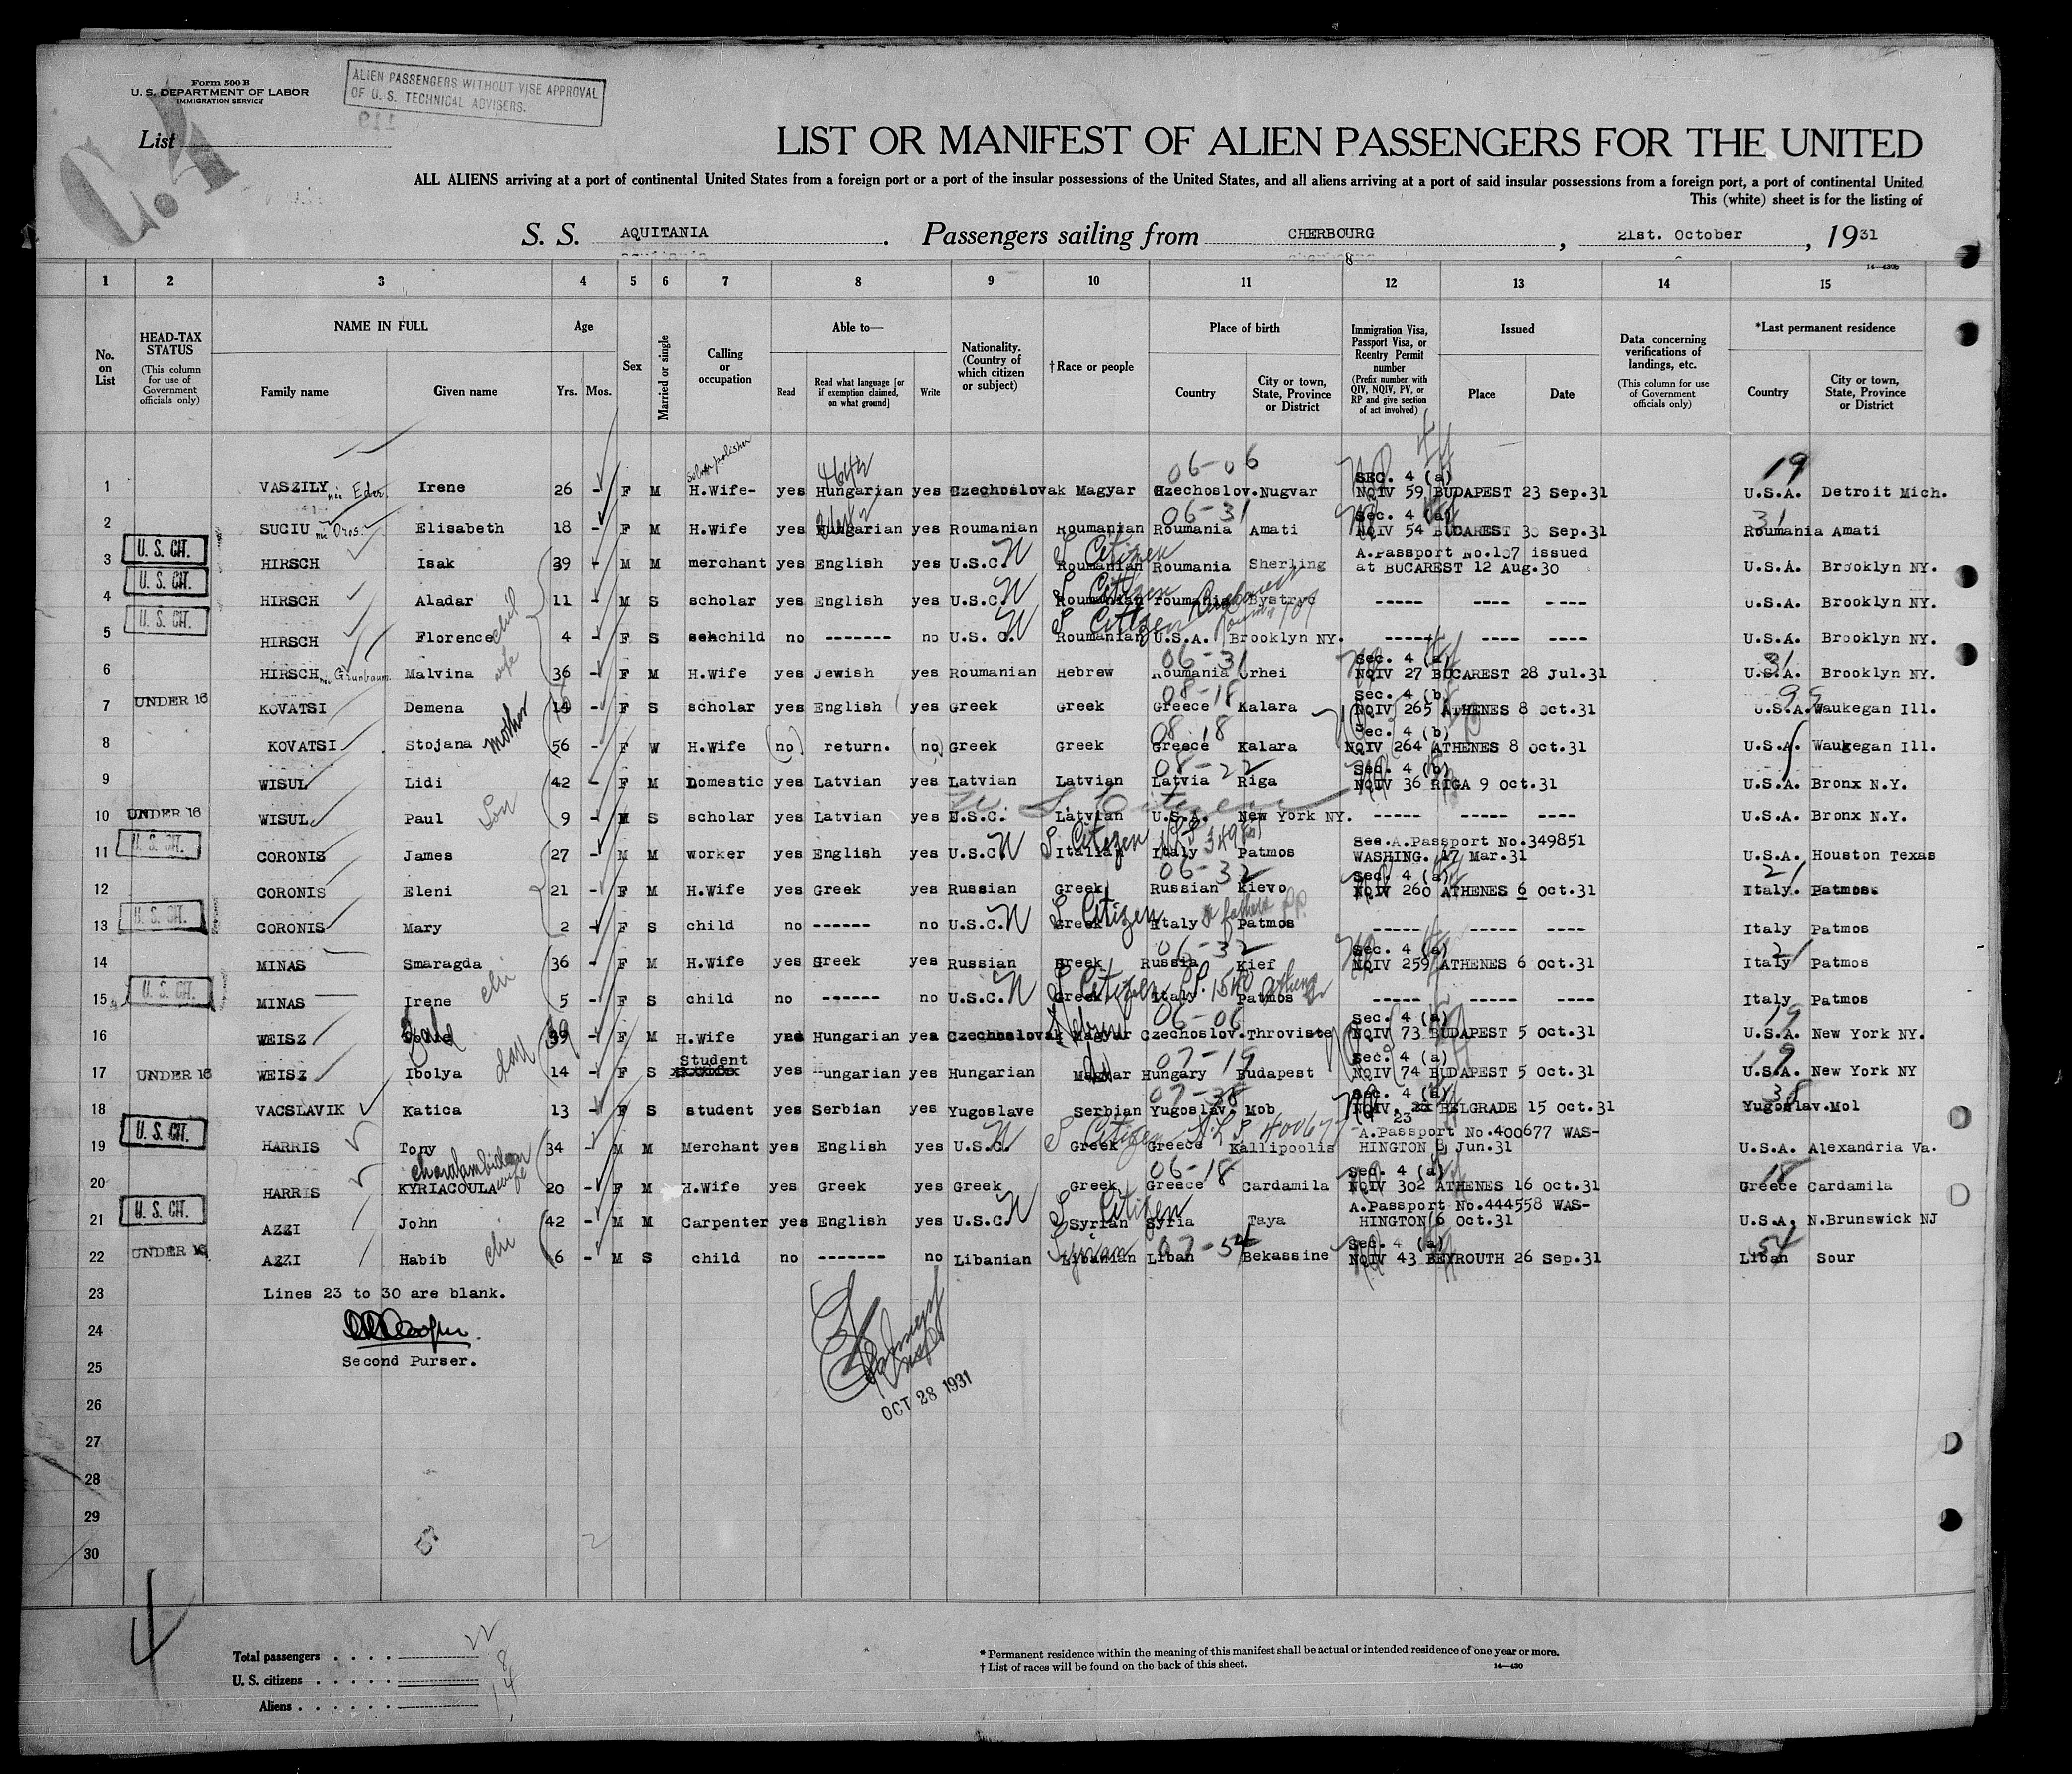 Form 500 B
U. S. DEPARTMENT OF LABOR
IMMIGRATION SERVICE
ALIEN PASSENGERS WITHOUT VISE APPROVAL
OF U. S. TECHNICAL ADVISERS.
C.4
List
LIST OR MANIFEST OF ALIEN PASSENGERS FOR THE UNITED
ALL ALIENS arriving at a port of continental United States from a foreign port or a port of the insular possessions of the United States, and all aliens arriving at a port of said insular possessions from a foreign port, a port of continental United
This (white) sheet is for the listing of
S. S. AQUITANIA. Passengers sailing from CHERBOURG, 21st. October, 1931
14-430b
1 2 3 4 5 6 7 8 9 10 11 12 13 14 15
No. on List
HEAD-TAX STATUS (This column for use of Government officials only)
NAME IN FULL Family name Given name
Age Yrs. Mos.
Sex
Married or single
Calling or occupation
Able to— Read Read what language [or if exemption claimed, on what ground] Write
Nationality. (Country of which citizen or subject)
†Race or people
Place of birth Country City or town, State, Province or District
Immigration Visa, Passport Visa, or Reentry Permit number (Prefix number with QIV, NQIV, PV, or RP and give section of act involved)
Issued Place Date
Data concerning verifications of landings, etc. (This column for use of Government officials only)
*Last permanent residence Country City or town, State, Province or District
06-06 SEC. 4 (a) 19
1 VASZILY née Eder Irene 26 - F M H.Wife- yes Hungarian yes Czechoslovak Magyar Czechoslov. Nugvar NQIV 59 BUDAPEST 23 Sep.31 U.S.A. Detroit Mich.
06-31 Sec. 4 (a) 31
2 SUCIU née Oros. Elisabeth 18 - F M H.Wife yes Hungarian yes Roumanian Roumanian Roumania Amati NQIV 54 BUCAREST 30 Sep.31 Roumania Amati
3 U. S. CIT. HIRSCH Isak 39 - M M merchant yes English yes U.S.C. U S Citizen Roumanian Roumania Sherling A.Passport No.107 issued at BUCAREST 12 Aug.30 U.S.A. Brooklyn NY.
4 U. S. CIT. HIRSCH Aladar 11 - M S scholar yes English yes U.S.C. U S Citizen Roumanian roumania Bystryc ----- ---- ---- U.S.A. Brooklyn NY.
5 U. S. CIT. HIRSCH Florence child 4 - F S child no ------- no U.S. C. U S Citizen Roumanian U.S.A. Brooklyn NY. ----- ---- ---- U.S.A. Brooklyn NY.
06-31 Sec. 4 (a) 31
6 HIRSCH née Grünbaum Malvina wife 36 - F M H.Wife yes Jewish yes Roumanian Hebrew Roumania Orhei NQIV 27 BUCAREST 28 Jul.31 U.S.A. Brooklyn NY.
08-18 Sec. 4 (b)
7 UNDER 16 KOVATSI Demena - F S scholar yes English yes Greek Greek Greece Kalara NQIV 265 ATHENES 8 Oct.31 U.S.A. Waukegan Ill.
08-18 Sec. 4 (b)
8 KOVATSI Stojana mother 56 - F W H.Wife (no) return. (no) Greek Greek Greece Kalara NQIV 264 ATHENES 8 Oct.31 U.S.A. Waukegan Ill.
08-22 Sec. 4 (b)
9 WISUL Lidi 42 - F M Domestic yes Latvian yes Latvian Latvian Latvia Riga NQIV 36 RIGA 9 Oct.31 U.S.A. Bronx N.Y.
U S Citizen
10 UNDER 16 WISUL Paul Son 9 - M S scholar yes Latvian yes U.S.C. Latvian U.S.A. New York NY. ----- ----- ---- U.S.A. Bronx N.Y.
11 U. S. CIT. CORONIS James 27 - M M worker yes English yes U.S.C. U S Citizen Italian Italy Patmos See.A.Passport No.349851 WASHING. 17 Mar.31 U.S.A. Houston Texas
06-32 Sec. 4 (a) 21
12 CORONIS Eleni 21 - F M H.Wife yes Greek yes Russian Greek Russian Kievo NQIV 260 ATHENES 6 Oct.31 Italy. Patmos.
13 U. S. CIT. CORONIS Mary 2 - F S child no ------ no U.S.C. U S Citizen Greek Italy Patmos ----- ----- ---- Italy Patmos
06-32 Sec. 4 (a) 21
14 MINAS Smaragda 36 - F M H.Wife yes Greek yes Russian Greek Russia Kief NQIV 259 ATHENES 6 Oct.31 Italy Patmos
15 U. S. CIT. MINAS Irene 5 - F S child no ------ no U.S.C. U S Citizen Greek Italy Patmos ----- ----- ---- Italy Patmos
06-06 Sec. 4 (a) 19
16 WEISZ 39 - F M H.Wife Hungarian yes Czechoslovak Magyar Czechoslov. Throviste NQIV 73 BUDAPEST 5 Oct.31 U.S.A. New York NY.
Student 07-19 Sec. 4 (a)
17 UNDER 16 WEISZ Ibolya 14 - F S yes Hungarian yes Hungarian Magyar Hungary Budapest NQIV 74 BUDAPEST 5 Oct.31 U.S.A. New York NY
07-38 Sec. 4 (a) 38
18 VACSLAVIK Katica 13 - F S student yes Serbian yes Yugoslave Serbian Yugoslav. Mob NQIV. 23 BELGRADE 15 Oct.31 Yugoslav.Mol
19 U. S. CIT. HARRIS Tony 34 - M M Merchant yes English yes U.S.C. U S Citizen 400677 Greek Greece Kallipoolis A.Passport No.400677 WAS-HINGTON 6 Jun.31 U.S.A. Alexandria Va.
06-18 Sec. 4 (a) 18
20 HARRIS KYRIACOULA wife 20 - F M H.Wife yes Greek yes Greek Greek Greece Cardamila NQIV 302 ATHENES 16 Oct.31 Greece Cardamila
21 U. S. CIT. AZZI John 42 - M M Carpenter yes English yes U.S.C. U S Citizen Syrian Syria Taya A.Passport No.444558 WAS-HINGTON 6 Oct.31 U.S.A. N.Brunswick NJ
07-54 Sec. 4 (a) 54
22 UNDER 16 AZZI Habib 6 - M S child no ------- no Libanian Syrian Libanian Liban Bekassine NQIV 43 BEYROUTH 26 Sep.31 Liban Sour
23 Lines 23 to 30 are blank.
24
Second Purser.
25
OCT 28 1931
26
27
28
29
30
4
Total passengers . . . . 22
U. S. citizens . . . . . 8
Aliens . . . . . . 14
* Permanent residence within the meaning of this manifest shall be actual or intended residence of one year or more.
† List of races will be found on the back of this sheet. 14—430